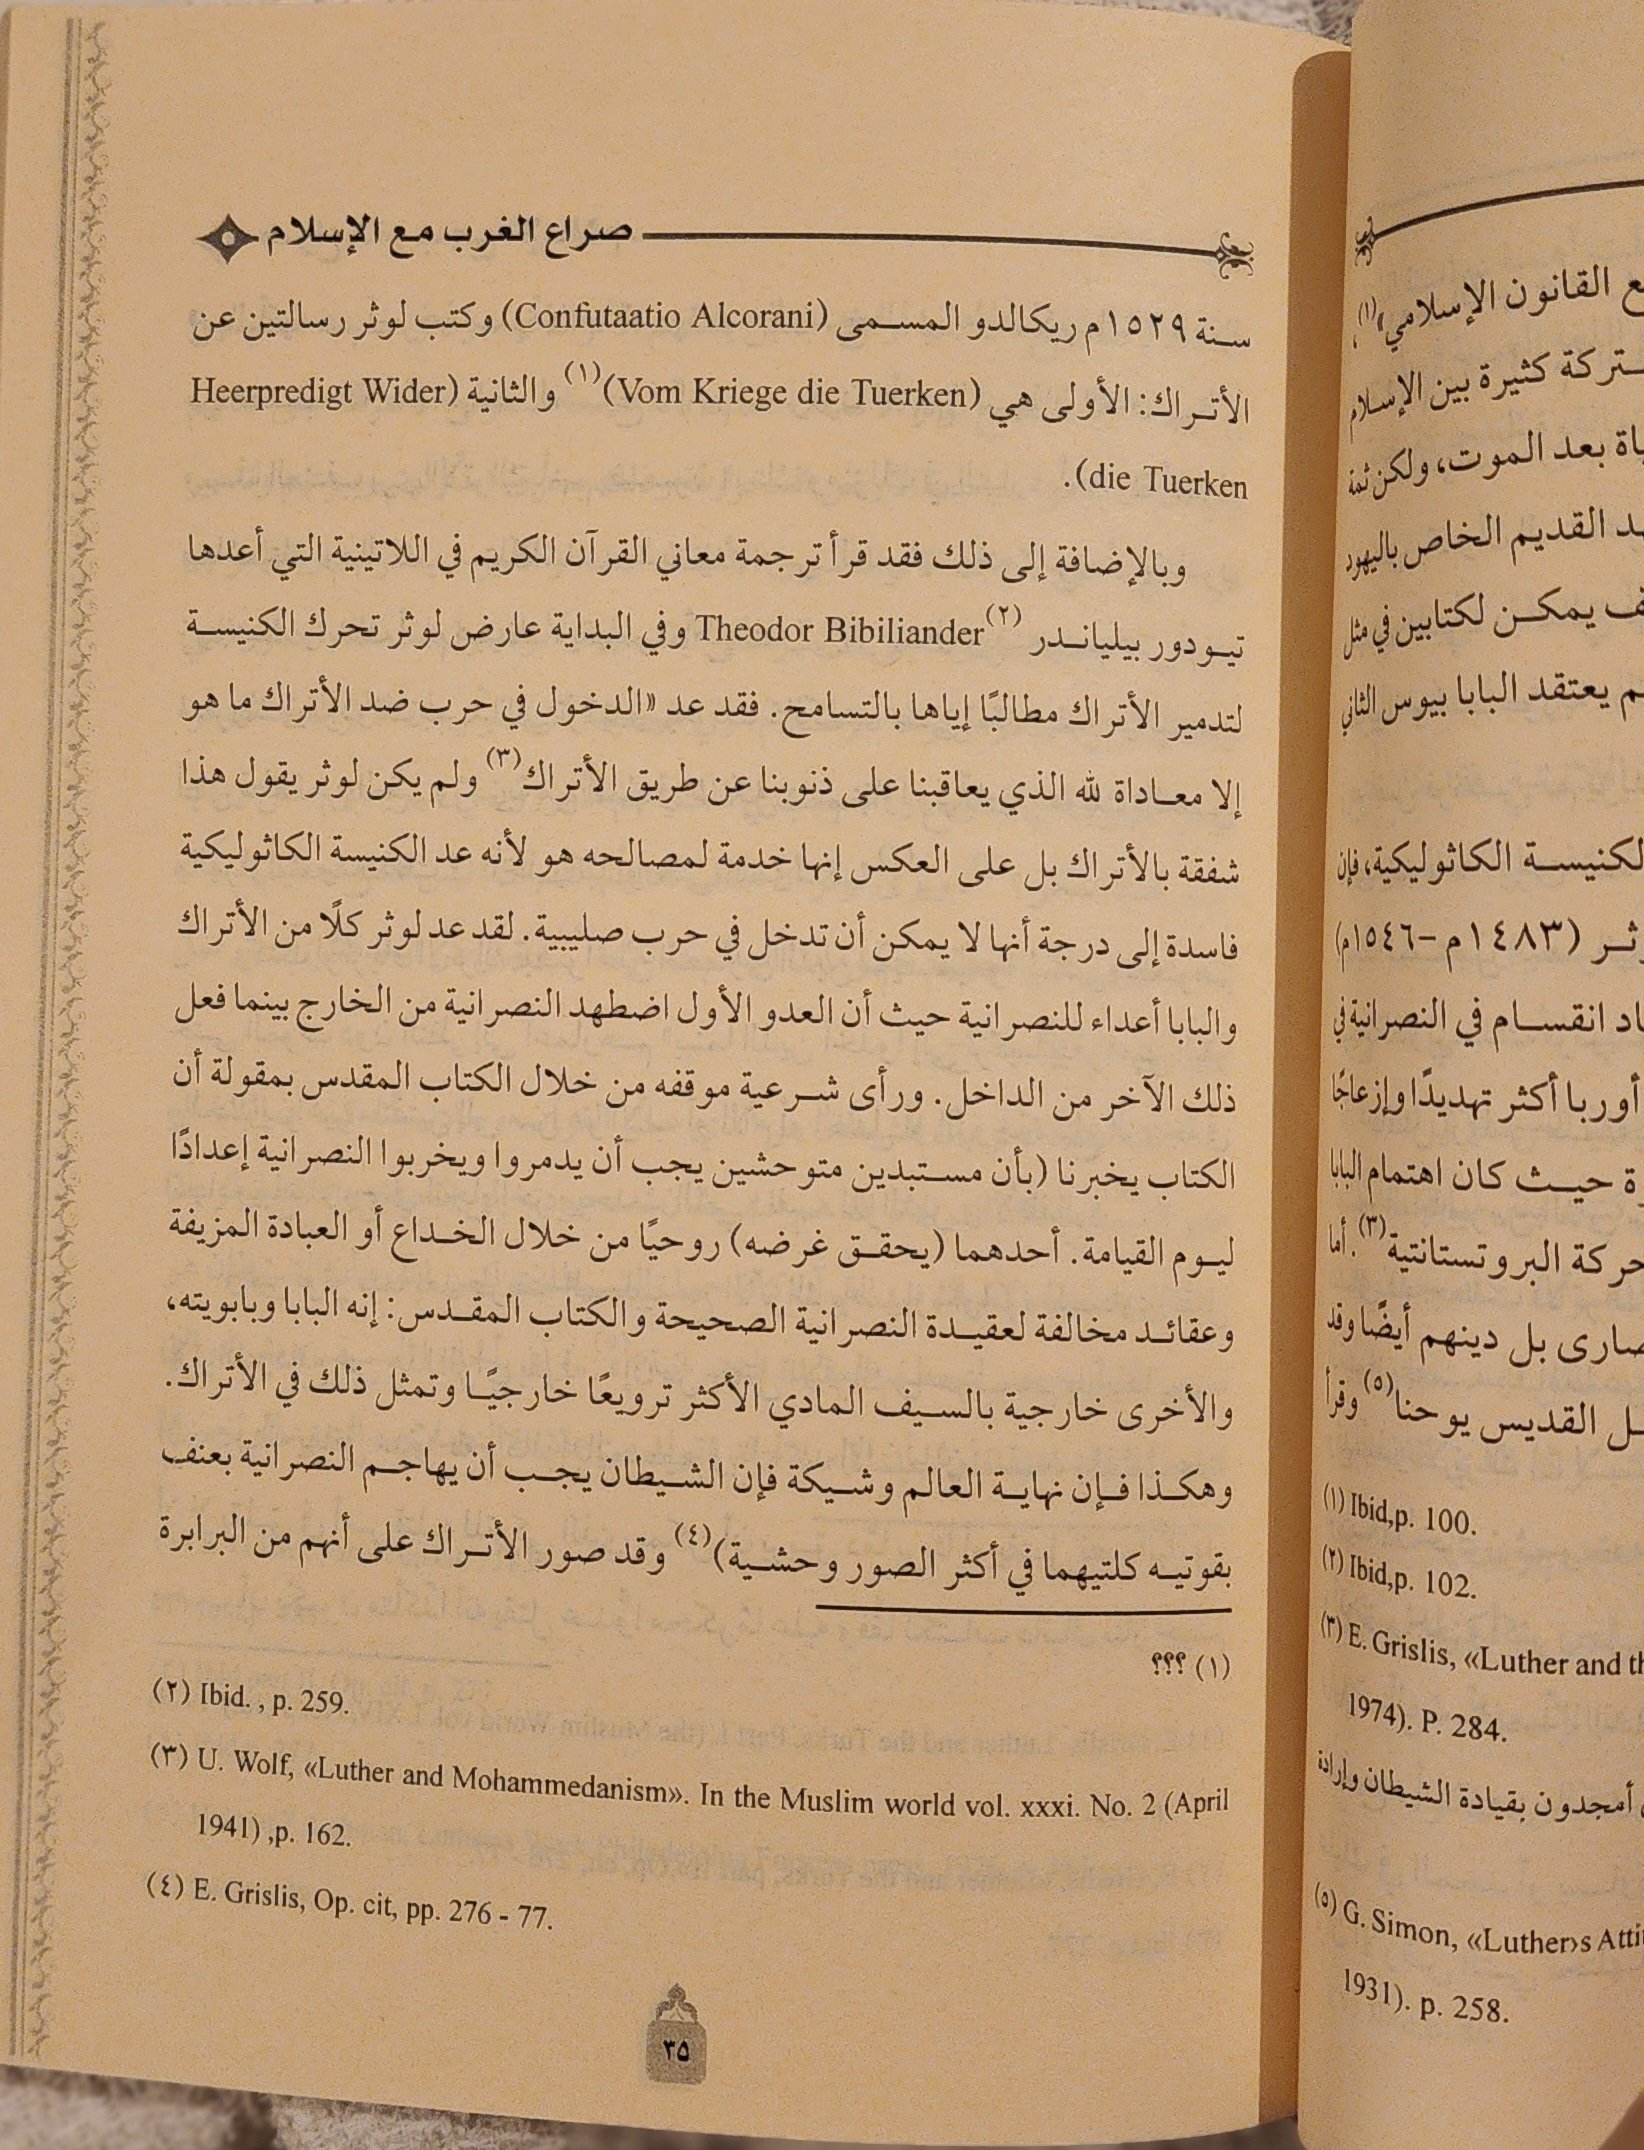 صراع الغرب مع الإسلام
سنة ١٥٢٩م ريكالدو المسمى (Confutaatio Alcorani) وكتب لوثر رسالتين عن
الأتراك: الأولى هي (Vom Kriege die Tuerken)(١) والثانية (Heerpredigt Wider
die Tuerken).
وبالإضافة إلى ذلك فقد قرأ ترجمة معاني القرآن الكريم في اللاتينية التي أعدها
تيودور بيلياندر Theodor Bibiliander(٢) وفي البداية عارض لوثر تحرك الكنيسة
لتدمير الأتراك مطالبًا إياها بالتسامح. فقد عد «الدخول في حرب ضد الأتراك ما هو
إلا معاداة لله الذي يعاقبنا على ذنوبنا عن طريق الأتراك(٣) ولم يكن لوثر يقول هذا
شفقة بالأتراك بل على العكس إنها خدمة لمصالحه هو لأنه عد الكنيسة الكاثوليكية
فاسدة إلى درجة أنها لا يمكن أن تدخل في حرب صليبية. لقد عد لوثر كلًا من الأتراك
والبابا أعداء للنصرانية حيث أن العدو الأول اضطهد النصرانية من الخارج بينما فعل
ذلك الآخر من الداخل. ورأى شرعية موقفه من خلال الكتاب المقدس بمقولة أن
الكتاب يخبرنا (بأن مستبدين متوحشين يجب أن يدمروا ويخربوا النصرانية إعدادًا
ليوم القيامة. أحدهما (يحقق غرضه) روحيًا من خلال الخداع أو العبادة المزيفة
وعقائد مخالفة لعقيدة النصرانية الصحيحة والكتاب المقدس: إنه البابا وبابويته،
والأخرى خارجية بالسيف المادي الأكثر ترويعًا خارجيًا وتمثل ذلك في الأتراك.
وهكذا فإن نهاية العالم وشيكة فإن الشيطان يجب أن يهاجم النصرانية بعنف
بقوتيه كلتيهما في أكثر الصور وحشية)(٤) وقد صور الأتراك على أنهم من البرابرة
(١) ؟؟؟
(٢) Ibid. , p. 259.
(٣) U. Wolf, «Luther and Mohammedanism». In the Muslim world vol. xxxi. No. 2 (April
1941) ,p. 162.
(٤) E. Grislis, Op. cit, pp. 276 - 77.
٣٥
ع القانون الإسلامي»(١)،
ـتركة كثيرة بين الإسلام
ياة بعد الموت، ولكن ثمة
ـد القديم الخاص باليهود
ـف يمكن لكتابين في مثل
ـم يعتقد البابا بيوس الثاني
لكنيسة الكاثوليكية، فإن
ـثر (١٤٨٣م -١٥٤٦م)
ـاد انقسام في النصرانية في
أوربا أكثر تهديدًا وإزعاجًا
ة حيث كان اهتمام البابا
حركة البروتستانتية(٣). أما
صارى بل دينهم أيضًا وقد
ـل القديس يوحنا(٥) وقرأ
(١) Ibid,p. 100.
(٢) Ibid,p. 102.
(٣) E. Grislis, «Luther and th
1974). P. 284.
أمجدون بقيادة الشيطان وإرادة
(٥) G. Simon, «Luther›s Atti
1931). p. 258.